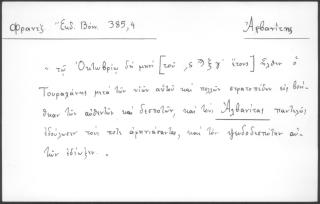 Φραντζ Ἔκδ. Βόνν. 385,4 Ἀρβανίτης
"τῷ Ὀκτωβρίῳ δὲ μηνὶ [τοῦ ,ςϠξγʹ ἔτους] ἦλθεν ὁ
Τουραχάνης μετὰ τῶν υἱῶν αὐτοῦ καὶ πολλῶν στρατοπέδων εἰς βοή-
θειαν τῶν αὐθεντῶν καὶ δεσποτῶν, καὶ τοὺς Ἀλβανίτας παντελῶς
ἐδούλωσεν τοὺς ποτὲ ἀρπηνιάσαντας, καὶ τὸν ψευδοδεσπότην αὐ-
τῶν ἐδίωξεν.